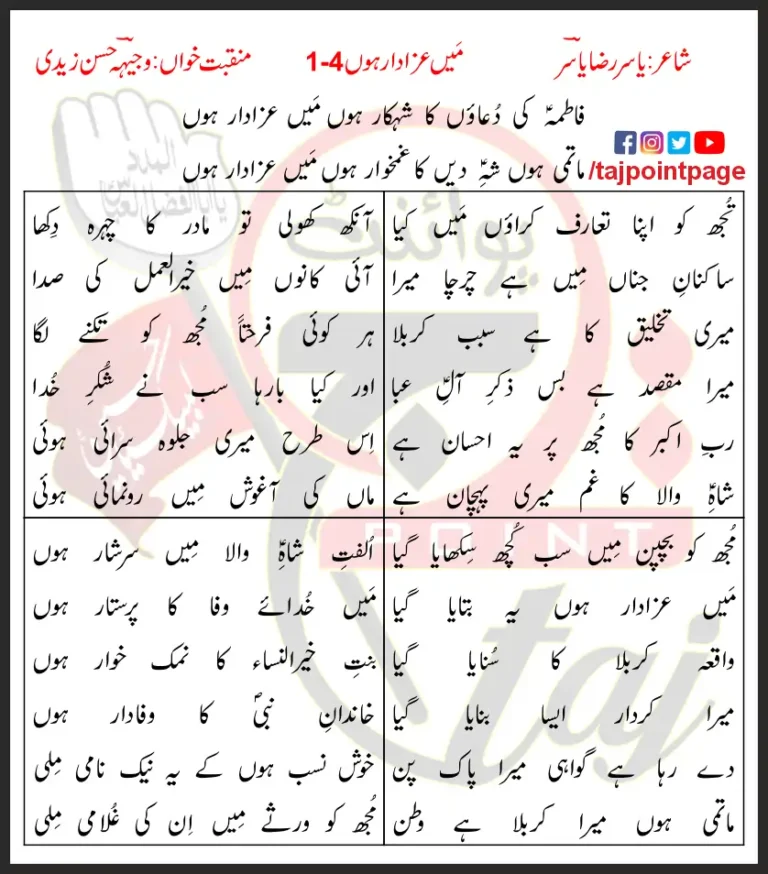 شاعر: یاسر رضا یاسر مَیں عزادار ہوں 4-1 منقبت خواں: وجیہہ حسن زیدی
فاطمہؑ کی دُعاؤں کا شہکار ہوں مَیں عزادار ہوں
ماتمی ہوں شہِؑ دیں کا غمخوار ہوں مَیں عزادار ہوں
/tajpointpage
تُجھ کو اپنا تعارف کراؤں مَیں کیا
ساکنانِ جناں مِیں ہے چرچا میرا
میری تخلیق کا ہے سبب کربلا
میرا مقصد ہے بس ذکرِ آلِؑ عبا
ربِ اکبر کا مُجھ پر یہ احسان ہے
شاہِؑ والا کا غم میری پہچان ہے
آنکھ کھولی تو مادر کا چہرہ دِکھا
آئی کانوں مِیں خیرالعمل کی صدا
ہر کوئی فرحتاً مُجھ کو تکنے لگا
اور کیا بارہا سب نے شُکرِ خُدا
اِس طرح میری جلوہ سرائی ہوئی
ماں کی آغوش مِیں رونمائی ہوئی
مُجھ کو بچپن مِیں سب کُچھ سِکھایا گیا
مَیں عزادار ہوں یہ بتایا گیا
واقعہ کربلا کا سُنایا گیا
میرا کردار ایسا بنایا گیا
دے رہا ہے گواہی میرا پاک پن
ماتمی ہوں میرا کربلا ہے وطن
اُلفتِ شاہِؑ والا مِیں سرشار ہوں
مَیں خُدائے وفا کا پرستار ہوں
بنتِ خیرالنساء کا نمک خوار ہوں
خاندانِ نبیؐ کا وفادار ہوں
خوش نسب ہوں کے یہ نیک نامی مِلی
مُجھ کو ورثے مِیں اِن کی غُلامی مِلی
پوائنٹ
POINT
taj